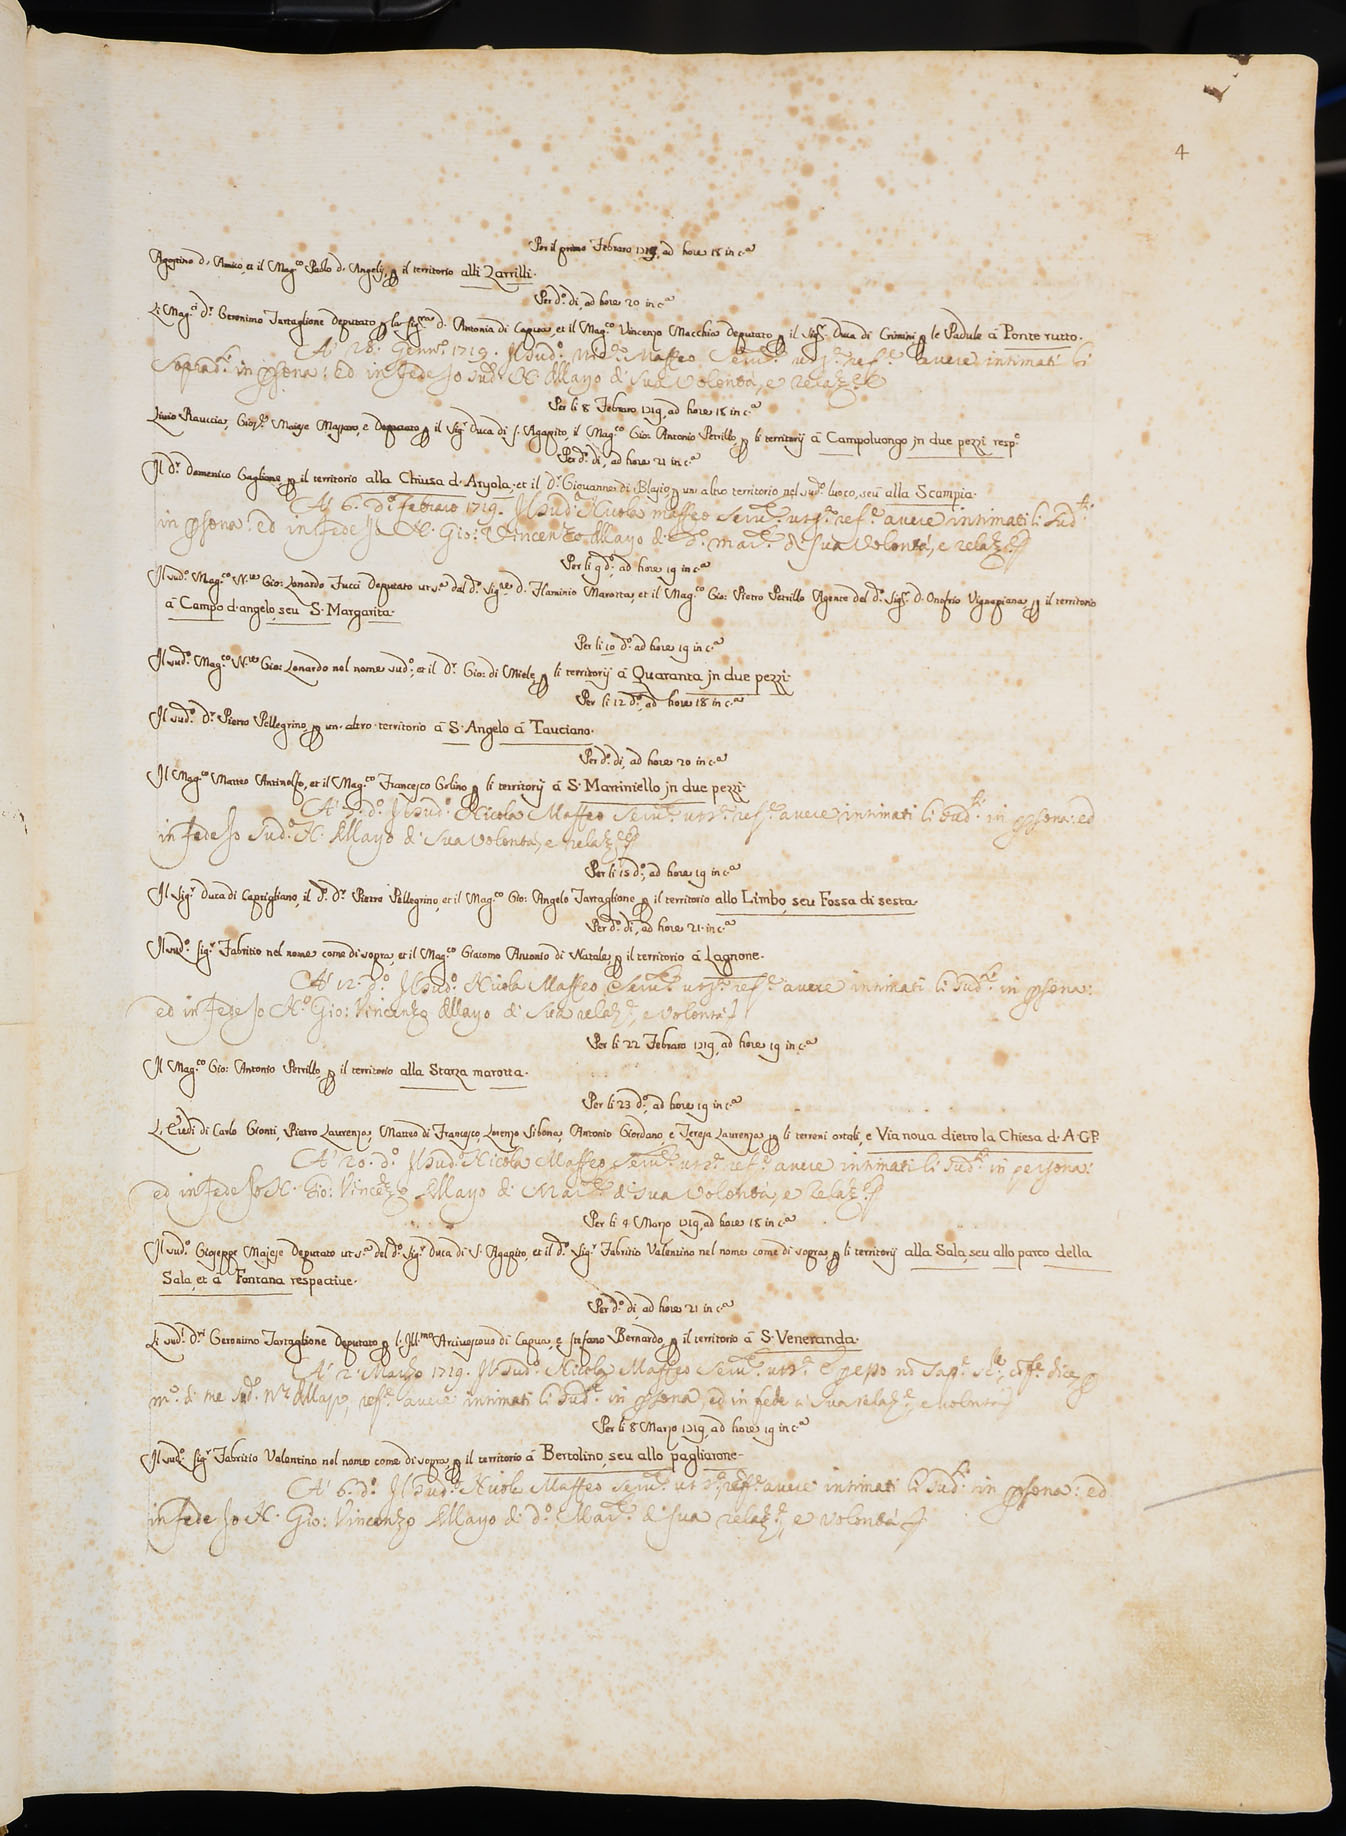 4
Per il primo Febraro 1719, ad hore 18 in c.ª
Agostino d. Amico, et il Mag.co Paolo d. Angelis, ꝑ il territorio alli Zarrilli.
Per d.º di, ad hore 20 in c.ª
Li Mag.ci D.r Geronimo Tartaglione Deputato ꝑ la Sig.ra D. Antonia di Capua, et il Mag.co Vincenzo Macchia Deputato ꝑ il Sig.r Duca di Crimini ꝑ le Padule à Ponte rutto.
A' 28. Genn.º 1719. Il sud.º Maffeo avere intimati li
soprad.i in ꝑsona: ed in fede Io sud.º N. Mayo di sua volontà, e relaz.e
Per li 8 Febraro 1719, ad hore 18 in c.ª
Livio Rauccia, Gios.e Maiese Massaro, e Deputato ꝑ il Sig.r Duca di S. Agapito, il Mag.co Gio: Antonio Petrillo, ꝑ li territorij à Campoluongo in due pezzi resp.e
Per d.º di, ad hore 21 in c.ª
Il D.r Domenico Gaglione, ꝑ il territorio alla Chiusa d. Aryola, et il D.r Giovanne di Blasio, ꝑ un altro territorio nel sud.º luoco, seu alla Scampia.
A' 6. D.º febraro 1719. Il sud.º Nicola Maffeo avere intimati li sud.ti
in ꝑsona: ed in fede Io N. Gio: Vincenzo Mayo di d.º Mar.se di sua volontà, e relaz.e
Per li 9 d.º, ad hore 19 in c.ª
Il sud.º Mag.co N.re Gio: Lonardo Fucci Deputato ut s.ª dal d.º Sig.re D. Flaminio Marotta, et il Mag.co Gio: Pietro Petrillo Agente del d.º Sig.r D. Onofrio Vignapiana, ꝑ il territorio
à Campo d. angelo, seu S. Margarita.
Per li 10 d.º ad hore 19 in c.ª
Il sud.º Mag.co N.re Gio: Lonardo nel nome sud.º, et il D.r Gio: di Miele, ꝑ li territorij à Quaranta in due pezzi.
Per li 12 d.º, ad hore 18 in c.ª
Il sud.º D.r Pietro Pellegrino, ꝑ un altro territorio à S. Angelo à Tauciano.
Per d.º di, ad hore 20 in c.ª
Il Mag.co Matteo Antinolfo, et il Mag.co Francesco Golino ꝑ li territorij à S. Martiniello in due pezzi.
A' d.º Il sud.º Nicola Maffeo avere intimati li sud.ti in ꝑsona: ed
in fede Io sud.º N. Mayo di sua volontà, e relaz.e
Per li 15 d.º, ad hore 19 in c.ª
Il Sig.r Duca di Caprigliano, il d.º D.r Pietro Pellegrino, et il Mag.co Gio: Angelo Tartaglione, ꝑ il territorio allo Limbo, seu Fossa di sesta.
Per d.º di, ad hore 21 in c.ª
Il sud.º Sig.r Fabritio nel nome come di sopra, et il Mag.co Giacomo Antonio di Natale, ꝑ il territorio à Lagnone.
A' 12. d.º Il sud.º Nicola Maffeo avere intimati li sud.ti in ꝑsona:
ed in fede Io N.º Gio: Vincenzo Mayo di sua relaz.e, e volontà
Per li 22 Febraro 1719, ad hore 19 in c.ª
Il Mag.co Gio: Antonio Petrillo, ꝑ il territorio alla Starza marotta.
Per li 23 d.º, ad hore 19 in c.ª
Li Eredi di Carlo Gionti, Pietro Laurenza, Matteo di Francesco, Lorenzo Sibona, Antonio Giordano, e Teresa Laurenza, ꝑ li terreni ortali, e Via noua dietro la Chiesa d. A.G.P.
A' 20. d.º Il sud.º Nicola Maffeo avere intimati li sud.ti in persona:
ed in fede Io N. Gio: Vincenzo Mayo di Mar.se di sua volontà, e relaz.e
Per li 4 Marzo 1719, ad hore 18 in c.ª
Il sud.º Gioseppe Majese Deputato ut s.ª del d.º Sig.r Duca di S. Agapito, et il d.º Sig.r Fabritio Valentino nel nome come di sopra, ꝑ li territorij alla Sala, seu allo parco della
Sala, et à Fontana respective.
Per d.º di, ad hore 21 in c.ª
Li sud.i D.ri Geronimo Tartaglione Deputato ꝑ l'Ill.mo Arcivescovo di Capua, e Stefano Bernardo, ꝑ il territorio à S. Veneranda.
A' 2. Marzo 1719. Il sud.º Nicola Maffeo
di me sud.º N.re Mayo, avere intimati li sud.ti in ꝑsona, ed in fede a sua relaz.e e volontà
Per li 8 Marzo 1719, ad hore 19 in c.ª
Il sud.º Sig.r Fabritio Valentino nel nome come di sopra, ꝑ il territorio à Bertolino, seu allo pagliarone.
A' 6. d.º Il sud.º Nicola Maffeo avere intimati li sud.ti in ꝑsona: ed
in fede Io N. Gio: Vincenzo Mayo di d.º Mar.se di sua relaz.e, e volontà